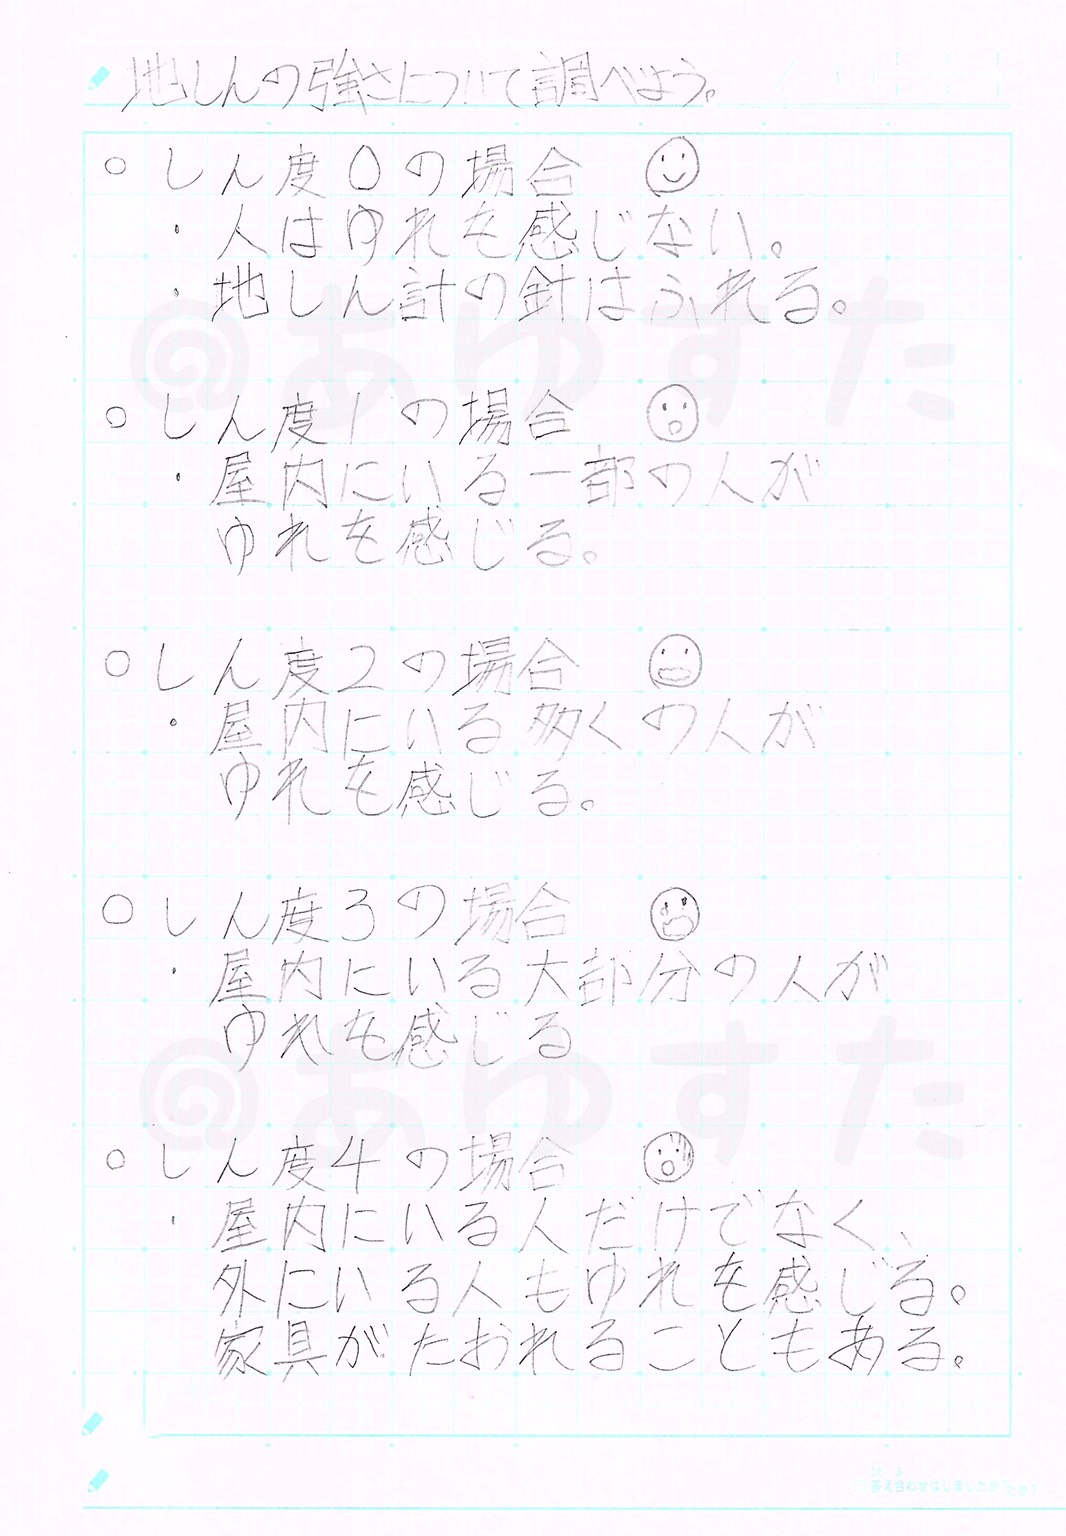 地しんの強さについて調べよう。
○しん度0の場合
・人はゆれを感じない。
・地しん計の針はふれる。
○しん度1の場合
・屋内にいる一部の人が
ゆれを感じる。
○しん度2の場合
・屋内にいる多くの人が
ゆれを感じる。
○しん度3の場合
・屋内にいる大部分の人が
ゆれを感じる
○しん度4の場合
・屋内にいる人だけでなく、
外にいる人もゆれを感じる。
家具がたおれることもある。
@あゆすた
@あゆすた